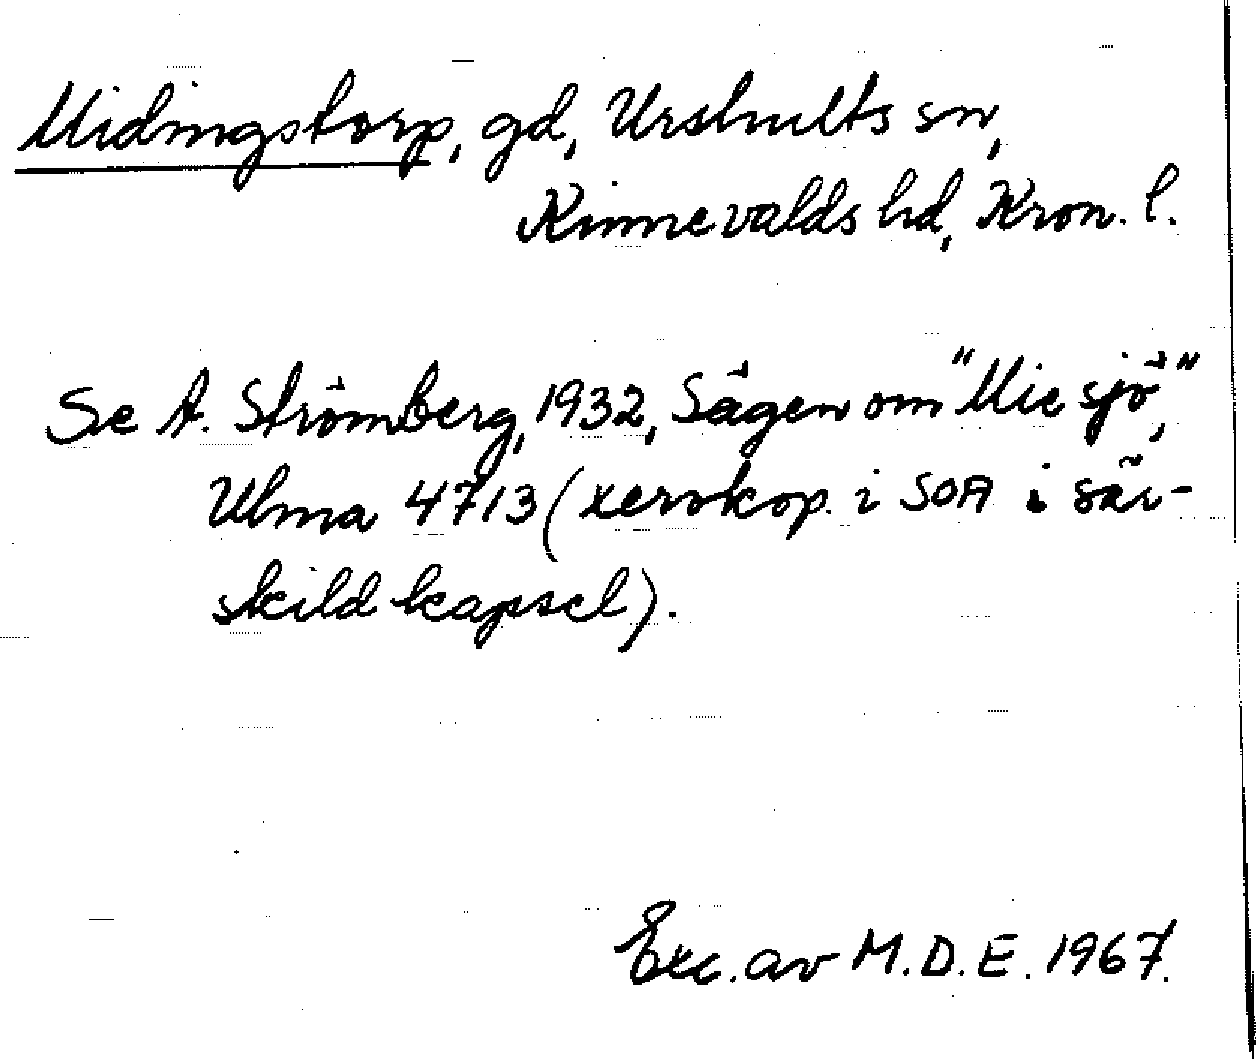 Midingstorp, gd, Urshults sn,
Kinnevalds hd, Kron. l.
Se A. Strömberg, 1932, Sägen om "Mie sjö",
Ulma 4713 (xerokop. i SOA i sär-
skild kapsel).
Exc. av M.D.E. 1967.